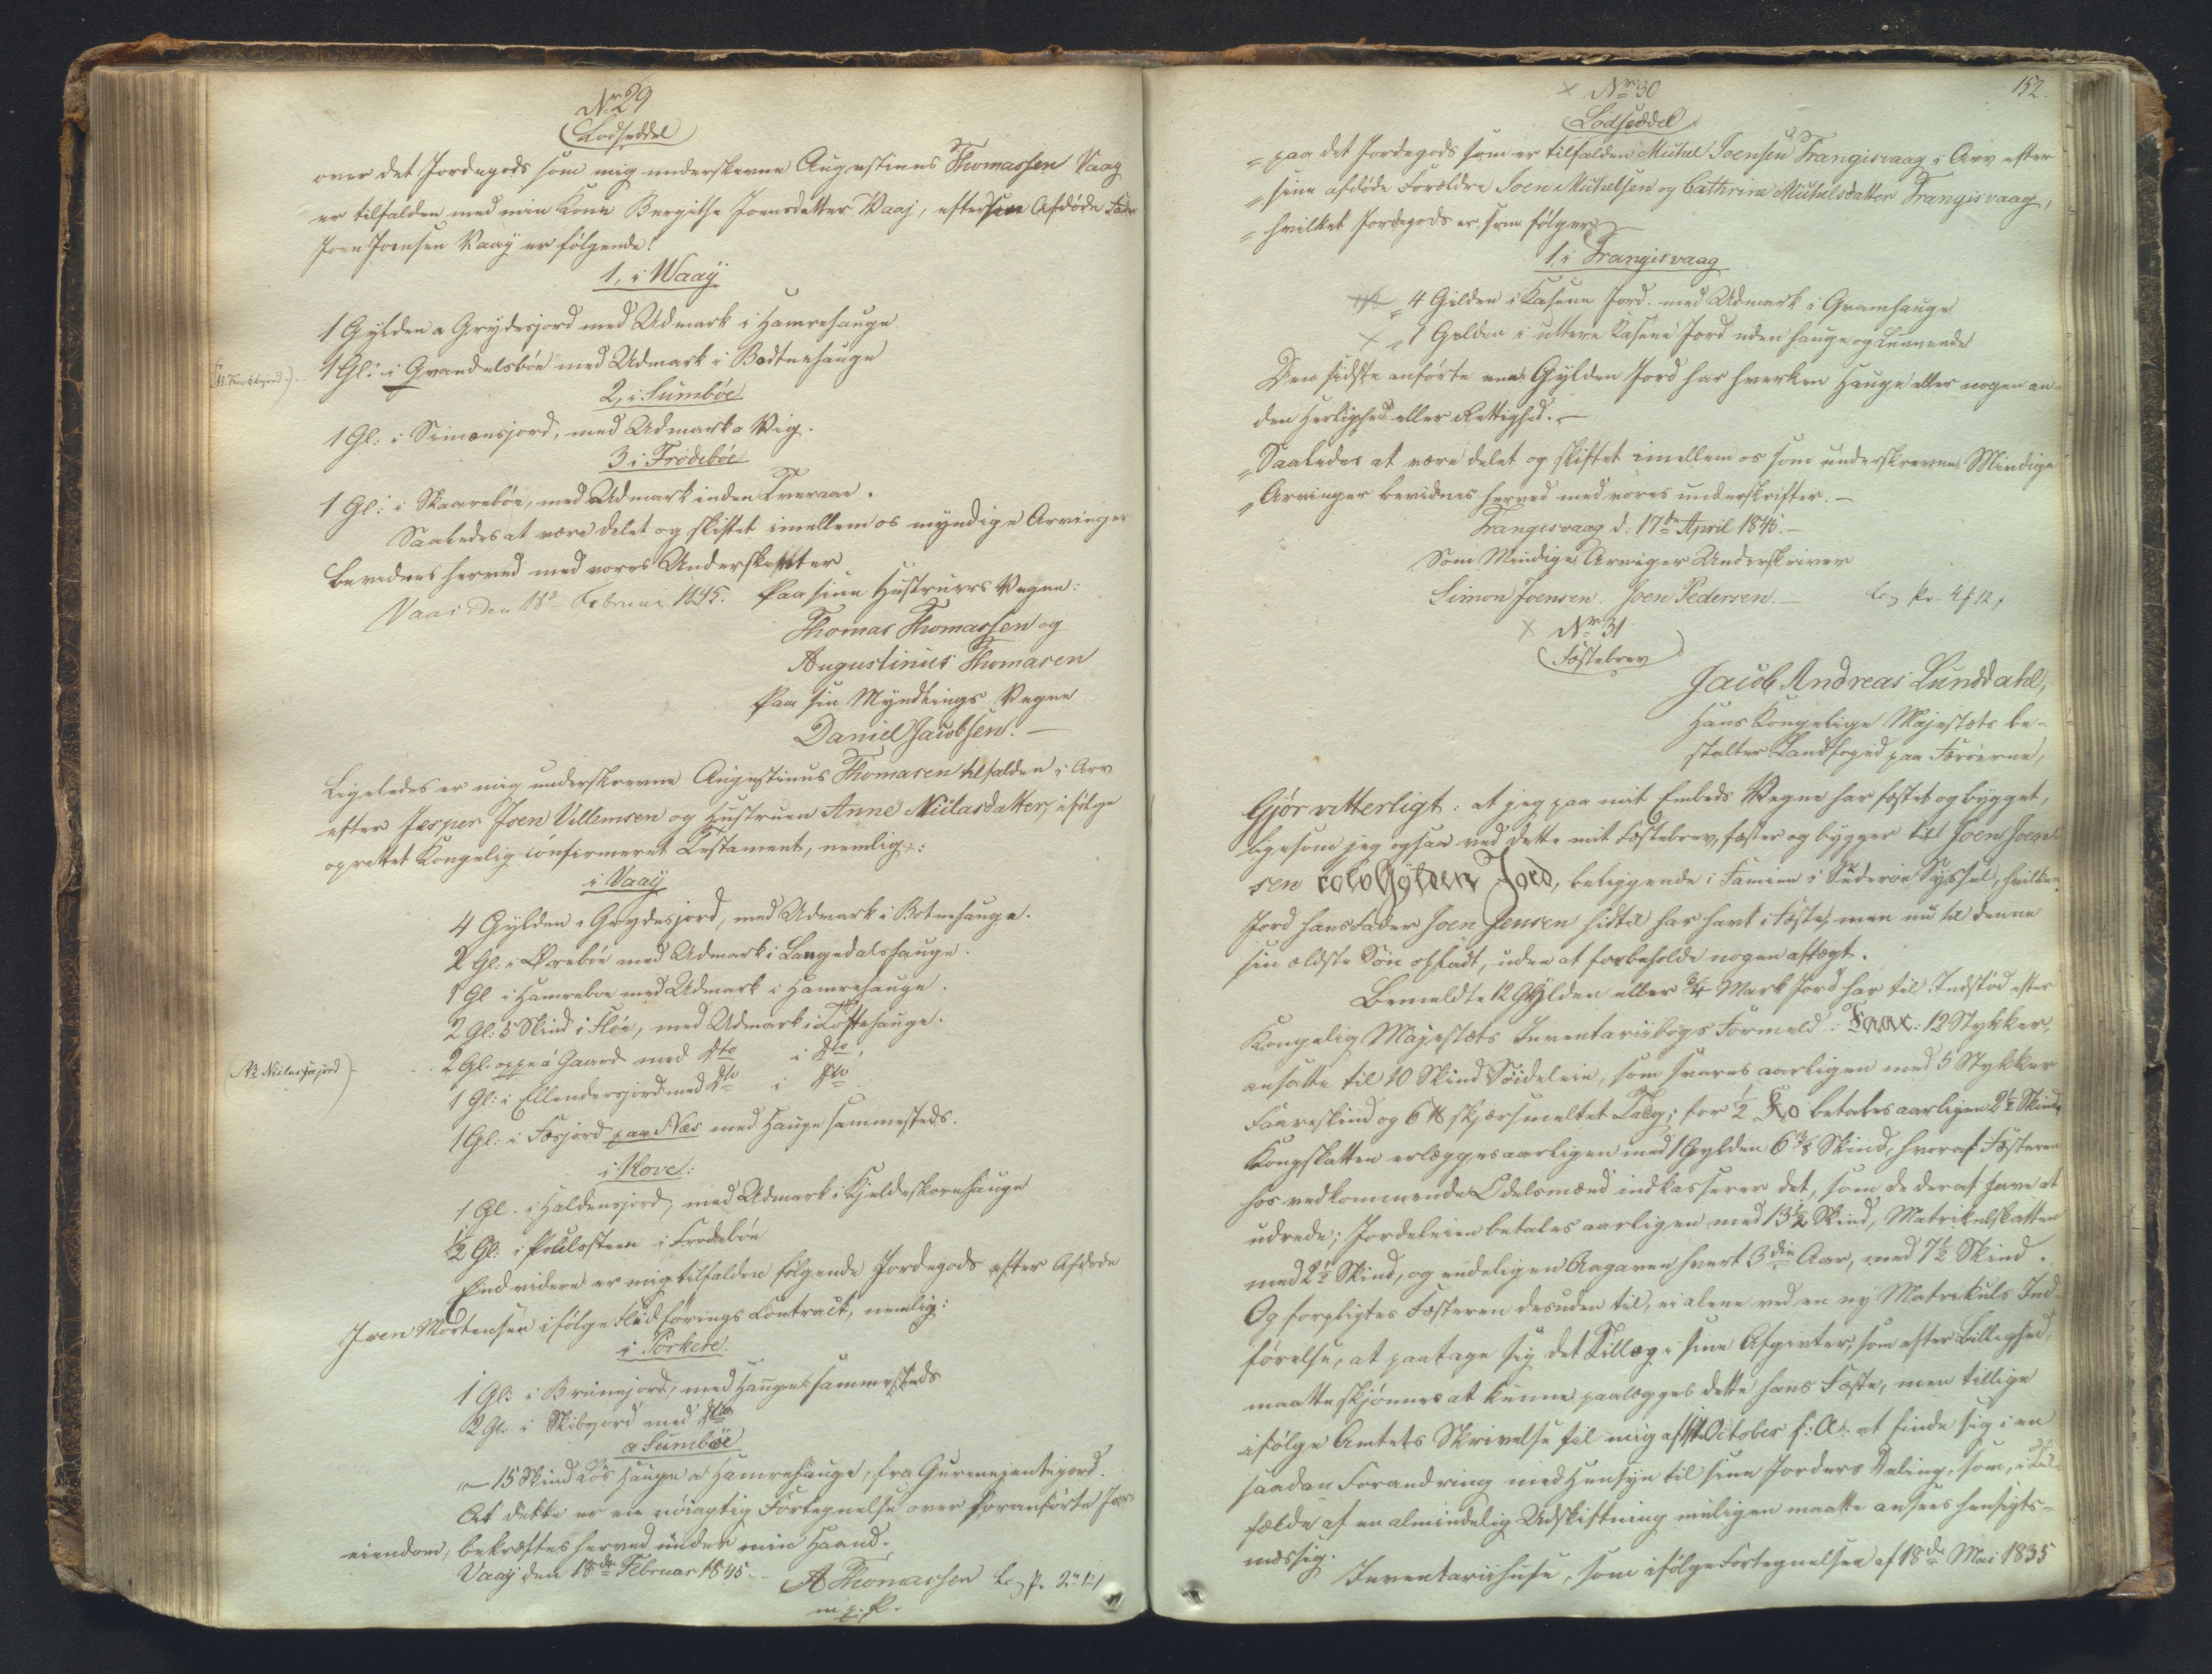 Nr 29
Lodseddel
over det Jordegods som mig underskrevne Augustinus Thomassen Vaag
er tilfalden med min Kone Bergithe Joensdatter Vaaj, efter sin Afdøde Fader
Joen Joensen Vaaÿ er følgende:
1, i Waaÿ
1 Gylden a Grydesjord med Udmark i Hamrehauge
1 Gl: i Grandalsbøe med Udmark i Bodtnehauge
2, i Sumbøe
1 Gl: i Simonsjord, med Udmark a Vig.
3 i Frodebøe
1 Gl: i Skaarebøe, med Udmark inden Tveraae.
Saaledes at være delet og skiftet imellem os myndige Arvinger
bevidnes herved med vores Underskrifter
Vaai den 18de Februar 1845. Paa sine Hustruers Vegne:
Thomas Thomassen og
Augustinus Thomasen
Paa sin Myndlings Vegne
Daniel Jacobsen. —
Ligeledes er mig underskrevne Augustinus Thomasen tilfalden i Arv
efter Jesper Joen Villemsen og Hustruen Anne Niclasdatter, ifølge
oprettet Kongelig confirmeret Testament, nemlig:
i Vaaÿ
4 Gylden i Grydesjord, med Udmark i Botnehauge.
2 Gl: i Ørebøe med Udmark i Langedalshauge.
1 Gl i Hamreboe med Udmark i Hamrehauge.
2 Gl: 5 Skind i Fløe, med Udmark i Toftehauge.
(NB Niclasesjord)
2 Gl. oppe a Gaard med Dto i Dto,
1 Gl: i Ellendersjord med Dto i Dto.
1 Gl: i Fæsjord paa Næs med Hauge sammesteds.
i Hove:
1 Gl. i Haldensjord, med Udmark i Kjeldeskorehauge
1/2 Gl: i Poulsteen i Frodebøe
End videre er mig tilfalden følgende Jordegods efter Afdøde
Joen Mortensen ifølge Flødførings Contract, nemlig:
i Porkere:
1 Gl: i Brünejord, med Hauge sammesteds
2 Gl. i Skibejord med Dto
a Sumbøe
15 Skind Løs Hauge a Hamrehauge, fra
At dette er en nøiagtig Fortegnelse over foranførte Jor-
eiendom, bekræftes herved under min Haand.
Vaaÿ den 18de Februar 1845. A Thomassen
m. p. P.
152.
Nr 30
Lodseddel
paa det Jordegods som er tilfalden Michel Joensen Trangisvaag i Arv efter
sine afdøde Forældre Joen Michelsen og Cathrine Michelsdatter Trangisvaag,
hvilket Jordegods er som følger
1, i Trangisvaag
4 Gilden i Kasene Jord. med Udmark i Gramhauge
1 Gylden i uttere Kasene Jord uden Hauge og Lunnende
Den sidste anførte ene Gylden Jord har hverken Hauge eller nogen an-
den Herlighed eller Rettighed. —
Saaledes at være delet og skiftet imellem os som underskrevne Mindige
Arvinger bevidnes herved med vores underskrifter. —
Trangisvaag d: 17de April 1845. —
Som Mindige Arvinger Underskriver
Simon Joensen. Joen Pedersen. —
Nr 31
Fæstebrev
Jacob Andreas Lunddahl,
Hans Kongelige Majestæts be-
stalter Landfoged paa Færøerne,
Gjør vitterligt: at jeg paa mit Embeds Vegne har fæstet og bygget,
ligesom jeg ogsaa ved dette mit Fæstebrev, fæster og bygger til Joen Joen-
sen tolv Gylden Jord, beliggende i Famien i Süderøe Syssel, hvilken
Jord hans Fader Joen Jensen hidtil har havt i Fæste, men nu til denne
sin ældste Søn opladt, uden at forbeholde nogen aftægt.
Bemeldte 12 Gylden eller 3/4 Mark Jord har til Indstød efter
Kongelig Majestæts Inventariibogs Formeld: Faar: 12 Stykker,
ansatte til 10 Skind Søideleie, som svares aarligen med 5 Stykker
Faareskind og 6 ℔ skjærsmeltet Talg; for 1/2 Ko betales aarligen 2 1/2 Skind,
Kongskatten erlægges aarligen med 1 Gylden 6 3/5 Skind, hvoraf Fæsteren
hos vedkommende Odelsmænd indkasserer det, som de deraf have at
udrede; Jordeleien betales aarligen med 13 1/2 Skind, Matrikulskatten
med 2 1/2 Skind, og endeligen Aagaven hvert 3die Aar, med 7 1/2 Skind.
Og forpligtes Fæsteren desuden til, ei alene ved en ny Matrikuls Ind-
førelse, at paatage sig det Tillæg i sine Afgivter, som efter Billighed
maatte skjønnes at kunne paalægges dette hans Fæste, men tillige
ifølge Amtets Skrivelse til mig af October f: A: at finde sig i en
saadan Forandring med Hensyn til sine Jorders Deling, som, i Til-
fælde af en almindelig Udskiftning muligen maatte ansees hensigts-
mæssig.
Inventariihuse, som ifølge Fortegnelsen af 18de Mai 1835